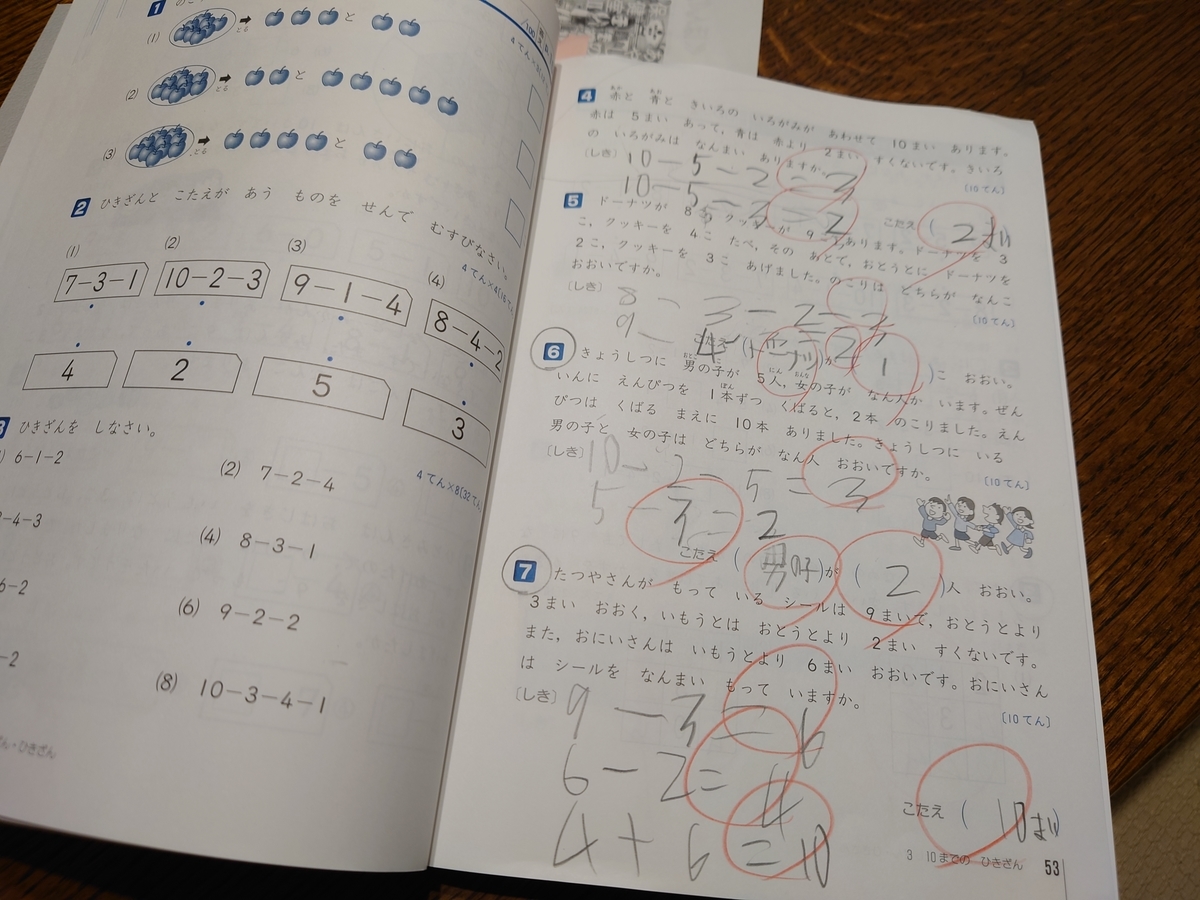 1
(1)
とる
と
(2)
とる
と
(3)
とる
と
2 ひきざんと こたえが あう ものを せんで むすびなさい。
(1) (2) (3) (4)
7-3-1 10-2-3 9-1-4 8-4-2
4 2 5 3
ひきざんを しなさい。
4てん×8(32てん)
6-1-2 (2) 7-2-4
-4-3 (4) 8-3-1
6-2 (6) 9-2-2
-2 (8) 10-3-4-1
ん・ひきざん
4 赤と 青と きいろの いろがみが あわせて 10まい あります。
赤は 5まい あって,青は 赤より 2まい すくないです。きいろ
の いろがみは なんまい ありますか。
〔10てん〕
〔しき〕 10-5-2=3
10-5-3=2
こたえ ( 2まい
5 ドーナツが 8こ, クッキーが 9こ あります。ドーナツを 3
こ,クッキーを 4こ たべ,その あとで,おとうとに ドーナツを
2こ,クッキーを 3こ あげました。のこりは どちらが なんこ
おおいですか。
〔10てん〕
〔しき〕 8-3-2=3
9-4-3=2
こたえ (ドーナツ)が ( 1 )こ おおい。
6 きょうしつに 男の子が 5人,女の子が なん人か います。ぜん
いんに えんぴつを 1本ずつ くばると,2本 のこりました。えん
ぴつは くばる まえに 10本 ありました。きょうしつに いる
男の子と 女の子は どちらが なん人 おおいですか。
〔10てん〕
〔しき〕 10-2-5=3
5-3=2
こたえ (男の子)が ( 2 )人 おおい。
7 たつやさんが もって いる シールは 9まいで,おとうとより
3まい おおく,いもうとは おとうとより 2まい すくないです。
また,おにいさんは いもうとより 6まい おおいです。おにいさん
は シールを なんまい もって いますか。
〔10てん〕
〔しき〕 9-3=6
6-2=4
4+6=10
こたえ ( 10まい
3 10までの ひきざん 53